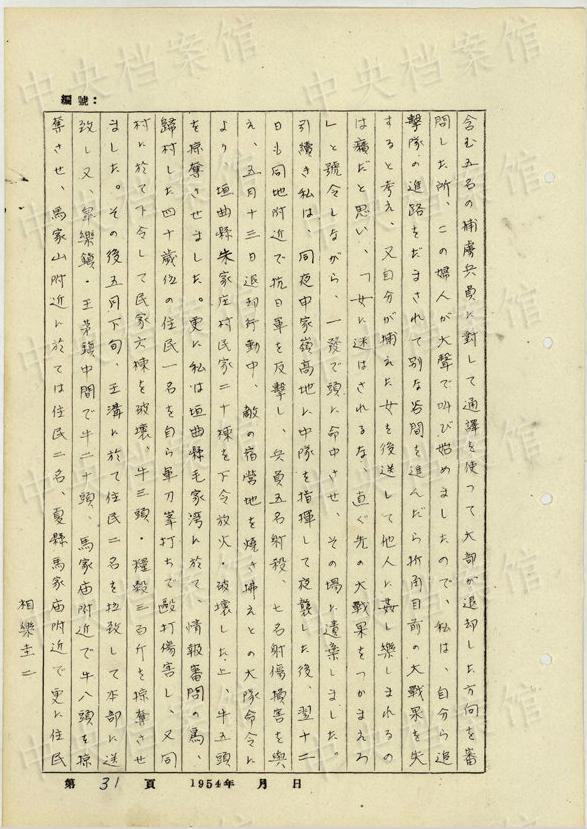 編號：
含む五名の捕虜兵員に対して通譯を使つて大部が退却した方向を審
問した所、この婦人が大聲で叫び始めましたので、私は、自分ら追
擊隊の進路をだまされて別な谷間を進んだら折角目前の大戰果を失
すると考え、又自分が捕えた女を後送して他人に姦し樂しまれるの
は癪だと思い、「女に迷はされるな、直ぐ先の大戰果をつかまえろ
」と號令しながら、一發で頭に命中させ、その場に遺棄しました。
引續き私は、同夜申家嶺高地に中隊を指揮して夜襲した後、翌十二
日も同地附近で抗日軍を反擊し、兵員五名射殺、七名射傷損害を與
え、五月十三日退却行動中、敵の宿營地を燒き拂えとの大隊命令に
より、垣曲縣朱家庄村民家二十棟を下令放火・破壞した上、牛五頭
を掠奪させました。更に私は垣曲縣毛家湾に於て、情報審問の爲、
歸村した四十歲位の住民一名を自ら軍刀峯打ちで毆打傷害し、又同
村に於て下令して民家六棟を破壞、牛三頭・糧穀三百斤を掠奪させ
ました。その後五月下旬、王溝に於て住民二名を拉致して本部に送
致し又、皐樂鎮・王茅鎮中間で牛二十頭、馬家庙附近で牛八頭を掠
奪させ、馬家山附近に於ては住民二名、夏縣馬家庙附近で更に住民
相樂圭二
第 31 頁 1954年 月 日
中央档案馆